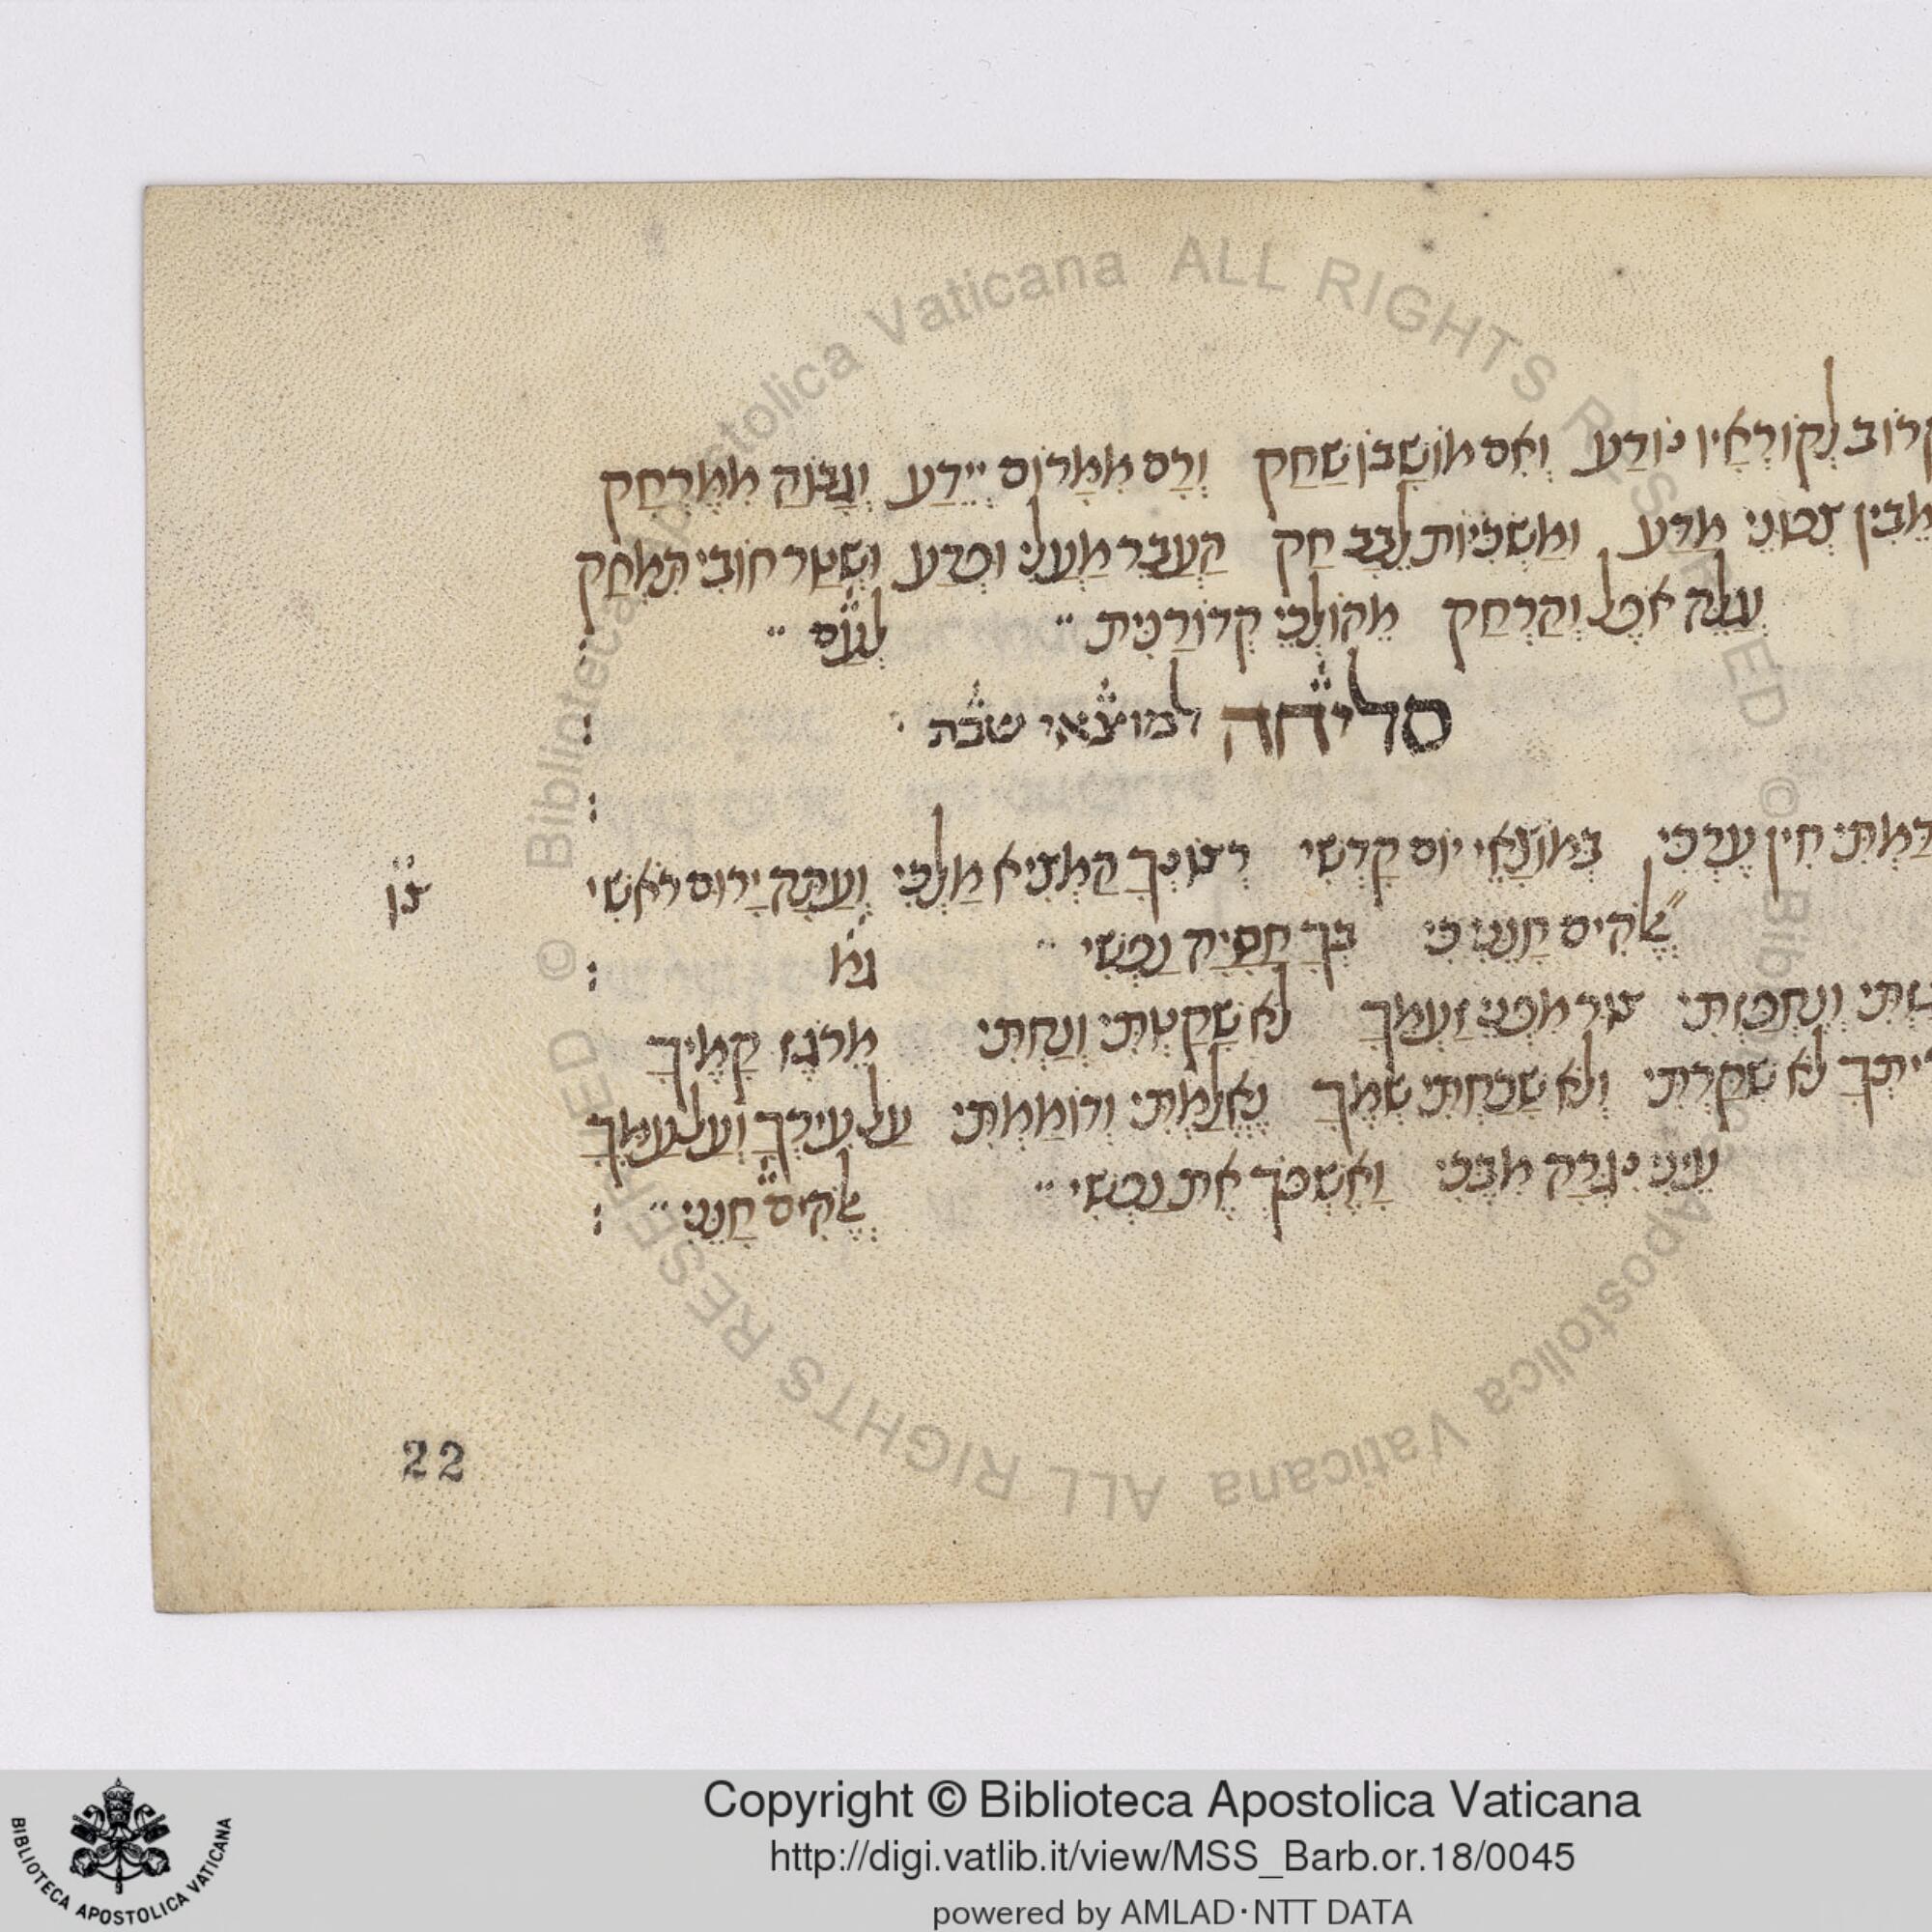 קרוב לקוראיו נודע ואם מושבו שחק ורם ממרום יידע וגבוה ממרחק
מבין צפוני מדע ומשכיות לבב חק העבר מעלי ופדע ושטר חובי המחק
אכל והרחק מקולכי קדורנית לגוים
סליחה למוצאי שבת
חין ערכי במוצאי יום קדשי רצונך המציא מלכי ועתה ירום ראשי
צון
אלהים חנני כי בך חסיה נפשי
גם
צור מפני זעמך לא שקטתי ונחתי מרגז קמיך
לא שקרתי ולא שכחתי שמך נאלמתי ודוממתי על עירך ועל עמך
עיני נגרה מבכי ואשפך את נפשי אלהים חנני
22
© Biblioteca Apostolica Vaticana ALL RIGHTS RESERVED
© Biblioteca Apostolica Vaticana ALL RIGHTS RESERVED
BIBLIOTECA APOSTOLICA VATICANA
Copyright © Biblioteca Apostolica Vaticana
http://digi.vatlib.it/view/MSS_Barb.or.18/0045
powered by AMLAD·NTT DATA